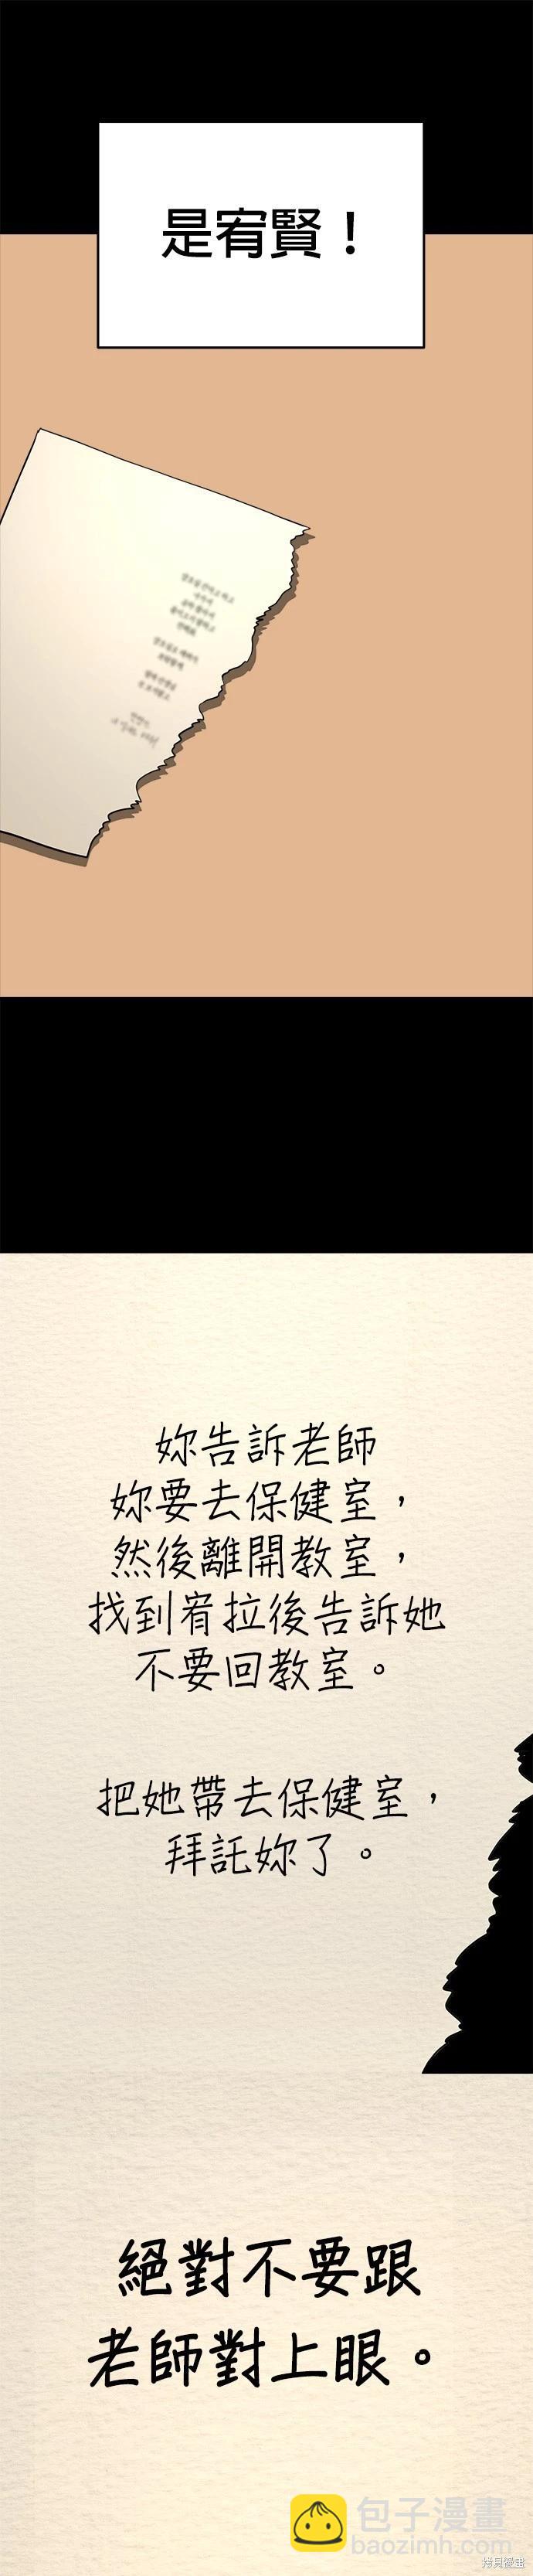 是宥賢！
妳告訴老師
妳要去保健室，
然後離開教室，
找到宥拉後告訴她
不要回教室。
把她帶去保健室，
拜託妳了。
絕對不要跟
老師對上眼。
包子漫畫
baozimh.com
拷貝漫畫